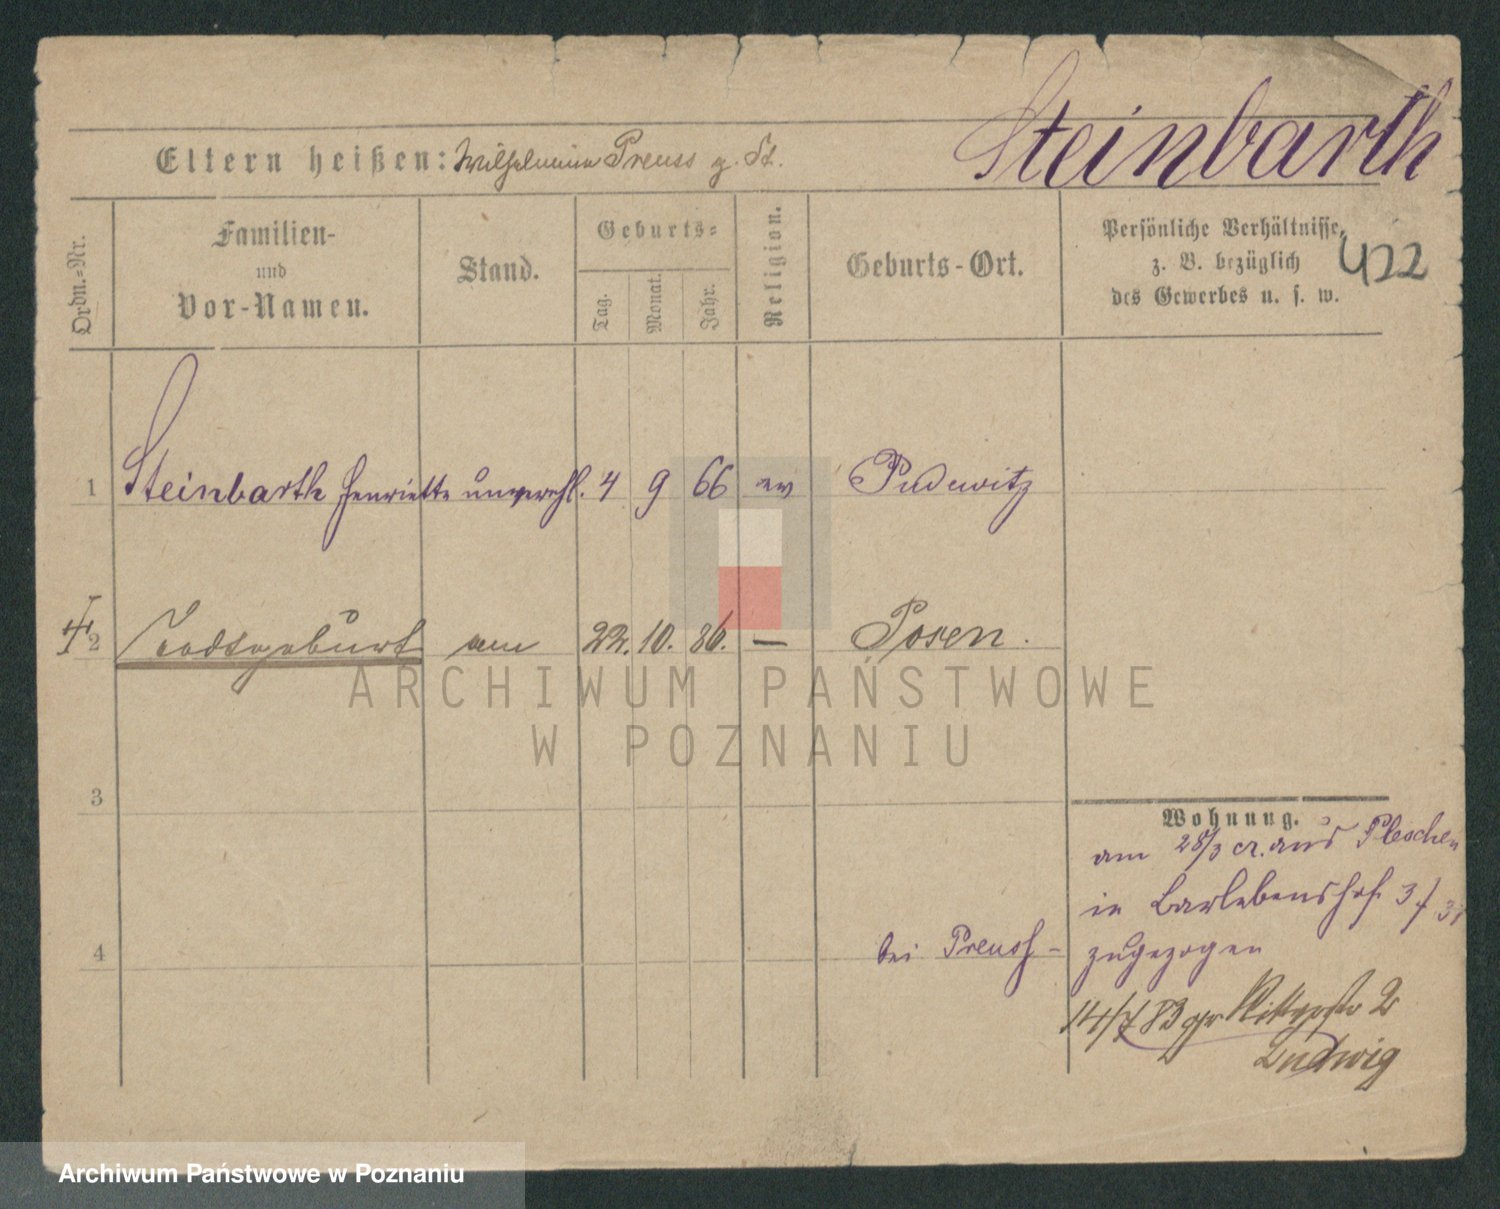 Steinbarth
Eltern heißen: Wilhelmine Preuss g. St.
Ordn.=Nr.
Familien-
und
Vor-Namen.
Stand.
Geburts=
Tag.
Monat.
Jahr.
Religion.
Geburts-Ort.
Persönliche Verhältnisse,
z. B. bezüglich
des Gewerbes u. s. w.
422
1 Steinbarth Henriette unverehl. 4 9 66 ev Pudewitz
2 Todtgeburt am 22. 10. 86. — Posen.
ARCHIWUM PAŃSTWOWE
W POZNANIU
3
Wohnung.
am 28/3 cr. aus Pleschen
in Barlebenshof 3
4 bei Preuss - zugezogen
14/7 83 2
Ludwig
Archiwum Państwowe w Poznaniu